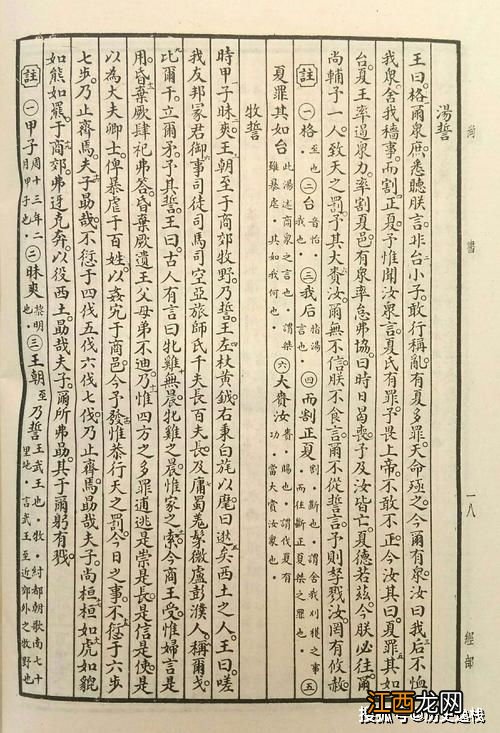 尚書
一八
經部
湯誓
王曰。格爾衆庶。悉聽朕言。非台小子。敢行稱亂。有夏多罪。天命殛之。今爾有衆。汝曰。我后不恤
我衆。舍我穡事。而割正夏。予惟聞汝衆言。夏氏有罪。予畏上帝。不敢不正。今汝其曰。夏罪其如
台。夏王率遏衆力。率割夏邑。有衆率怠弗協。曰。時日曷喪。予及汝皆亡。夏德若茲。今朕必往。爾
尚輔予一人。致天之罰。予其大賚汝。爾無不信。朕不食言。爾不從誓言。予則孥戮汝。罔有攸赦。
註 ㊀格 至也。 ㊁台 音怡我也。 ㊂我后 指湯也。 ㊃而割正夏 割，斷也，謂舍我刈穫之事，而往斷正夏桀之罪也。 ㊄
夏罪其如台 此湯述商衆之言也，謂桀雖暴虐，其如我何也。 ㊅大賚汝 賚，賜也，謂代夏有功，當大賞汝衆也。
牧誓
時甲子昧爽。王朝至于商郊牧野。乃誓。王左杖黃鉞。右秉白旄以麾。曰。逖矣西土之人。王曰。嗟
我友邦冢君。御事司徒司馬司空。亞旅師氏。千夫長百夫長。及庸蜀羌髳微盧彭濮人。稱爾戈。
比爾干。立爾矛。予其誓。王曰。古人有言曰。牝雞無晨。牝雞之晨。惟家之索。今商王受。惟婦言是
用。昏棄厥肆祀弗答。昏棄厥遺王父母弟不迪。乃惟四方之多罪逋逃。是崇是長。是信是使。是
以為大夫卿士。俾暴虐于百姓。以姦宄于商邑。今予發。惟恭行天之罰。今日之事。不愆于六步
七步。乃止齊焉。夫子勗哉。不愆于四伐五伐六伐七伐。乃止齊焉。勗哉夫子。尚桓桓。如虎如貔。
如熊如羆。于商郊。弗迓克奔。以役西土。勗哉夫子。爾所弗勗。其于爾躬有戮。
註 ㊀甲子 周十三年二月甲子也。 ㊁昧爽 黎明也。 ㊂王朝至乃誓 王，武王也，牧，紂都朝歌南七十里地，言武王至近郊外之牧野也
江西龙网
搜狐号@历史遗栈